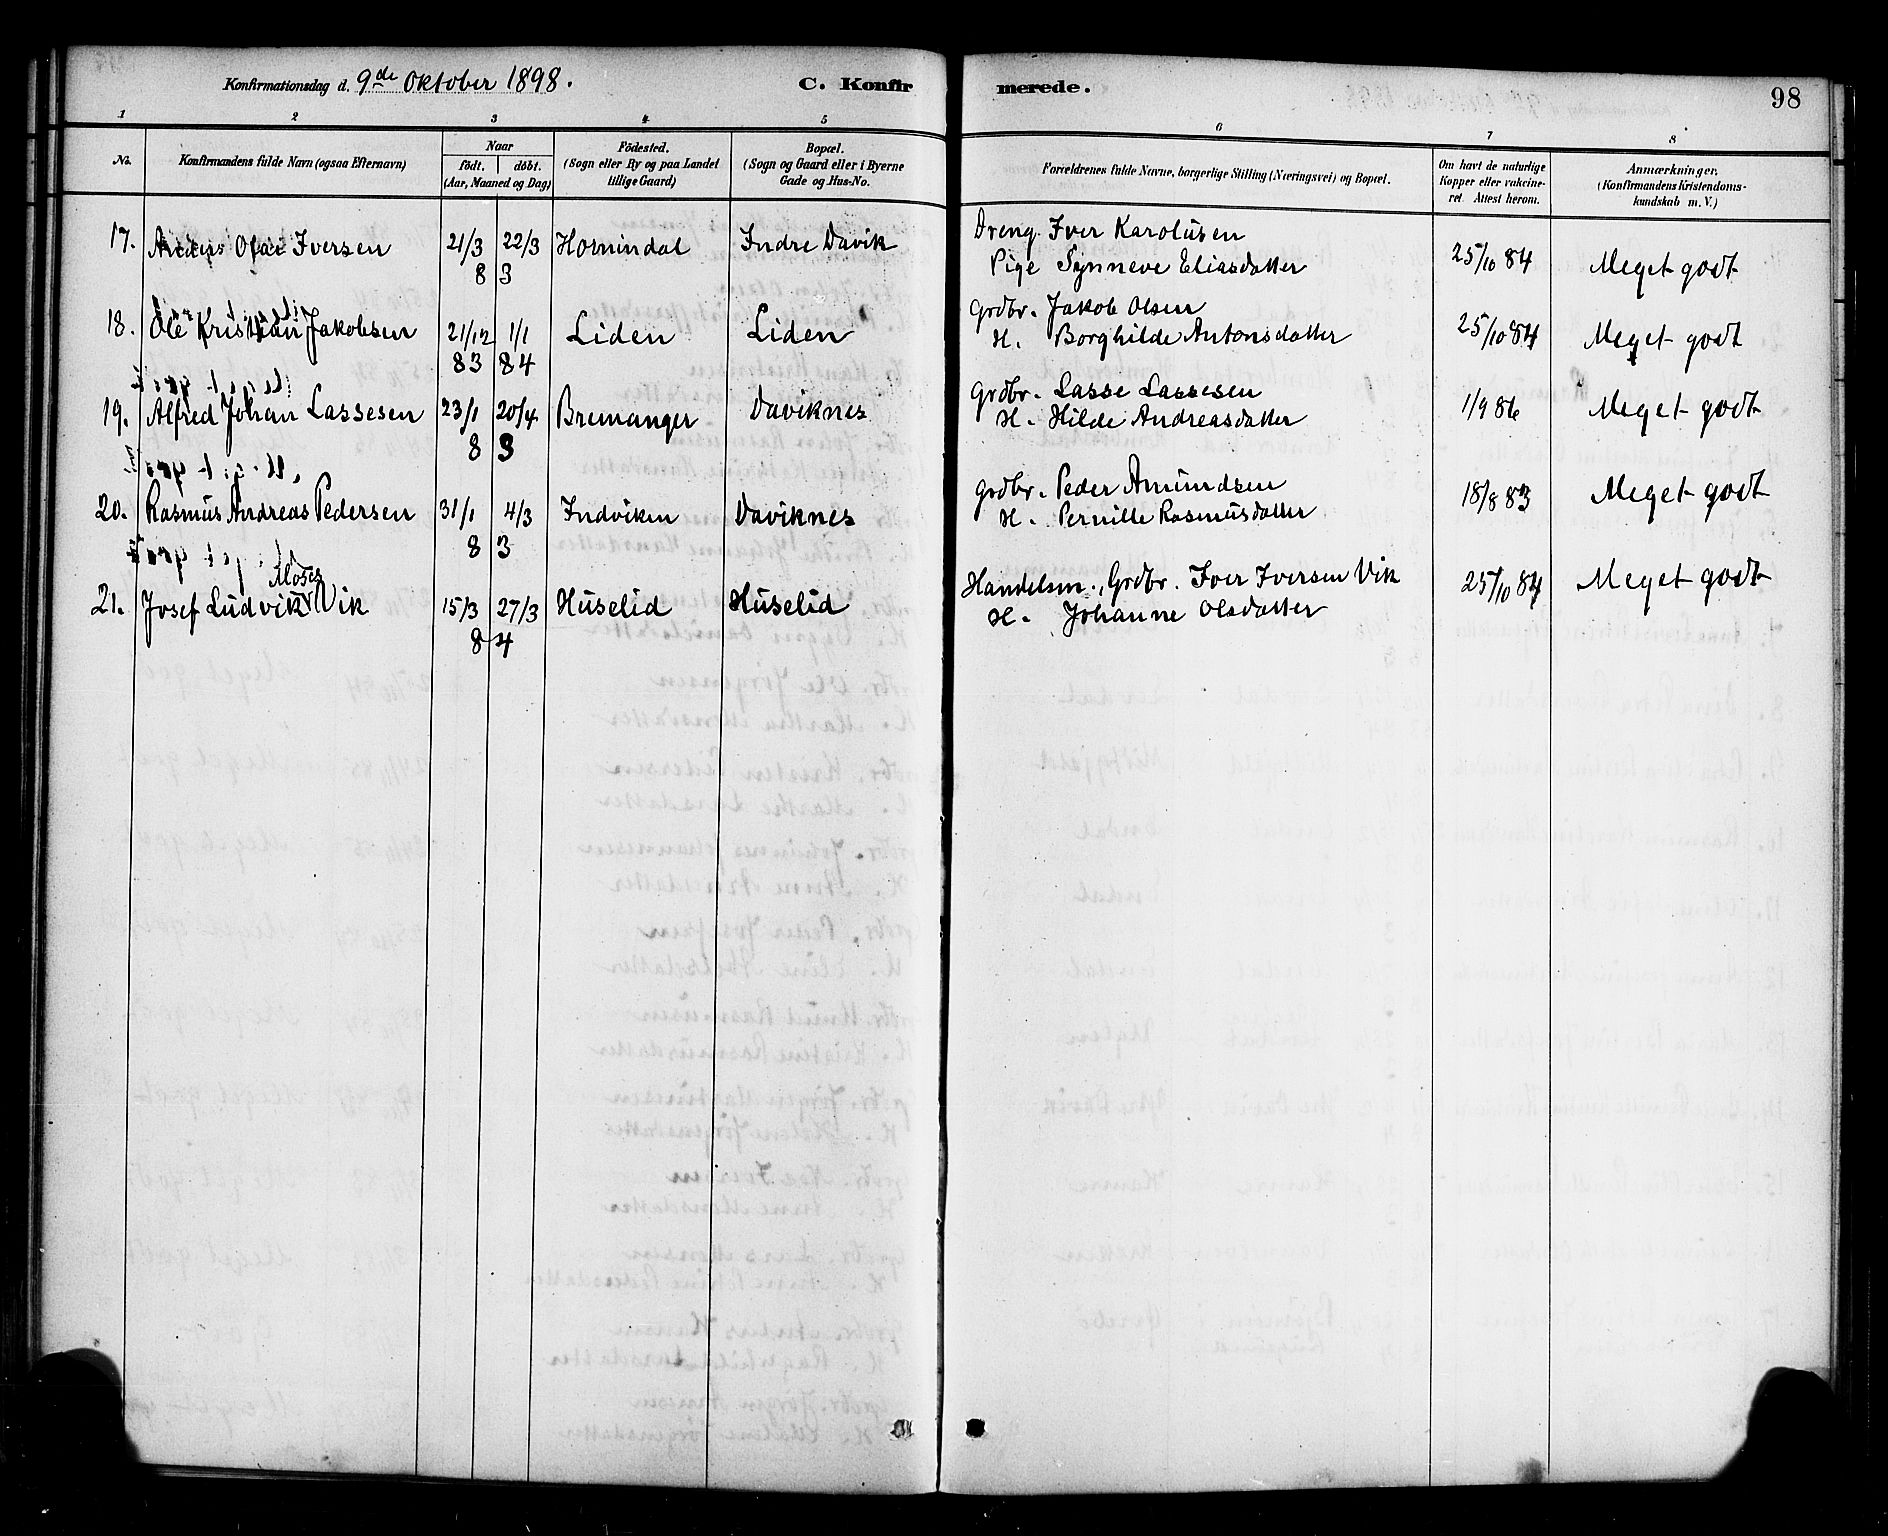 Konfirmationsdag d. 9de Oktober 1898. C. Konfirmerede. 98
1 2 3 4 5 6 7 8
No. Konfirmandens fulde Navn (ogsaa Efternavn) Naar födt. döbt. (Aar, Maaned og Dag) Födested. (Sogn eller By og paa Landet tillige Gaard) Bopæl. (Sogn og Gaard eller i Byerne Gade og Hus-No. Forældrenes fulde Navne, borgerlige Stilling (Næringsvei) og Bopæl. Om havt de naturlige Kopper eller vakcineret. Attest herom. Anmærkninger. (Konfirmandens Kristendomskundskab m. V.)
17. Anders Olai Iversen 21/3 22/3 Hornindal Indre Davik Dreng Iver Karolusen 25/10 84 Meget godt
8 3 Pige Synneve Eliasdatter
18. Ole Kristian Jakobsen 21/12 1/1 Liden Liden Grdbr. Jakob Olsen 25/10 84 Meget godt
83 84 H. Borghilde Antonsdatter
19. Alfred Johan Lassesen 23/1 20/4 Bremanger Daviknes Grdbr. Lasse Lassesen 1/9 86 Meget godt
8 3 H. Hilde Andreasdatter
20. Rasmus Andreas Pedersen 31/1 4/3 Indviken Daviknes Grdbr. Peder Amundsen 18/8 83 Meget godt
8 3 H. Pernille Rasmusdatter
21. Josef Ludvik Moses Vik 15/3 27/3 Huselid Huselid Handelsm., Grdbr. Iver Iversen Vik 25/10 84 Meget godt
8 4 H. Johanne Olsdatter